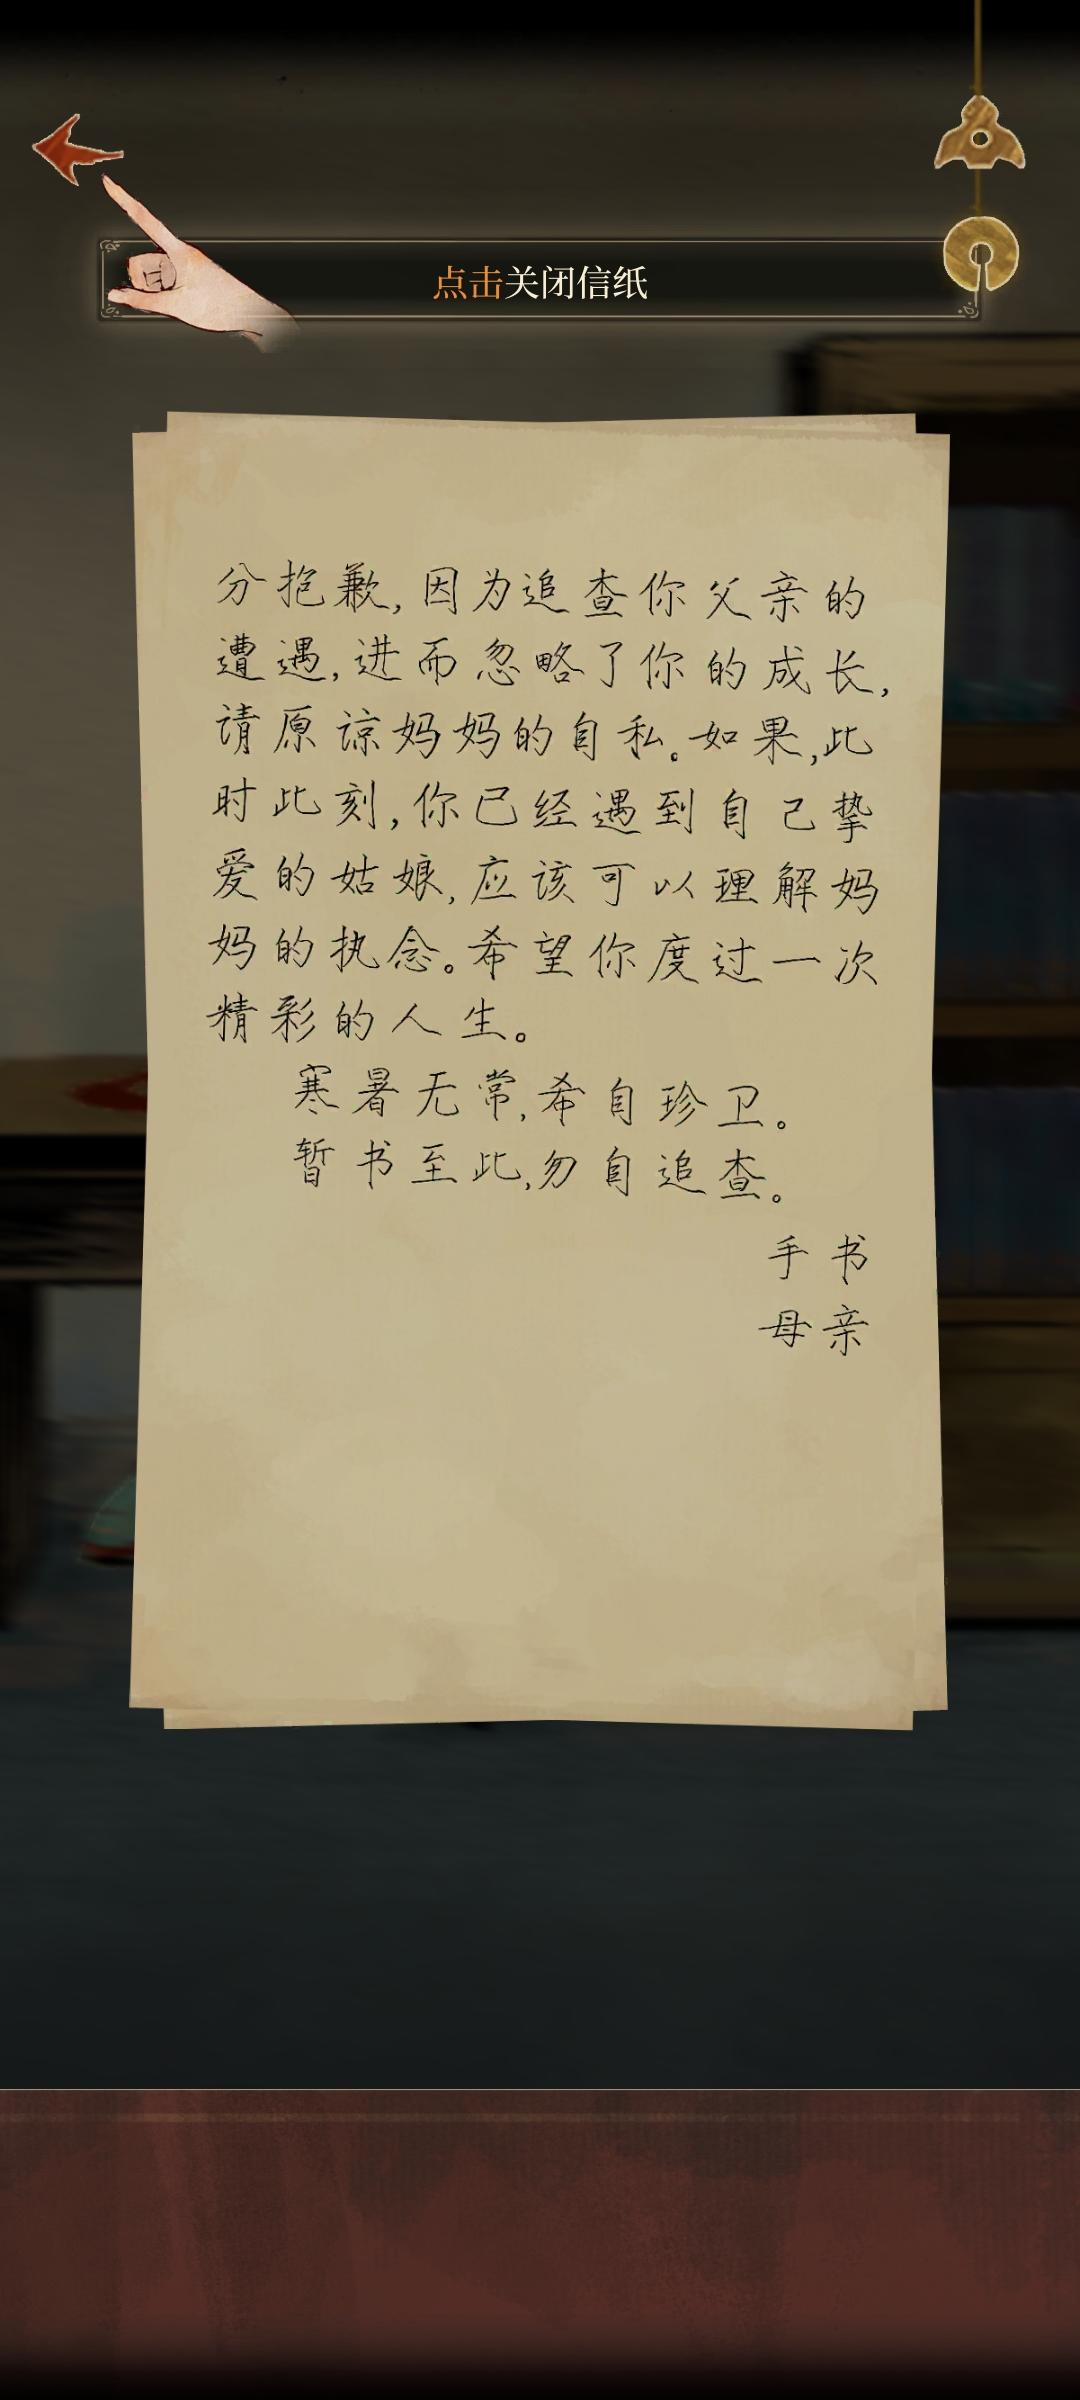 点击关闭信纸
分抱歉,因为追查你父亲的
遭遇,进而忽略了你的成长,
请原谅妈妈的自私。如果,此
时此刻,你已经遇到自己挚
爱的姑娘,应该可以理解妈
妈的执念。希望你度过一次
精彩的人生。
寒暑无常,希自珍卫。
暂书至此,勿自追查。
手书
母亲